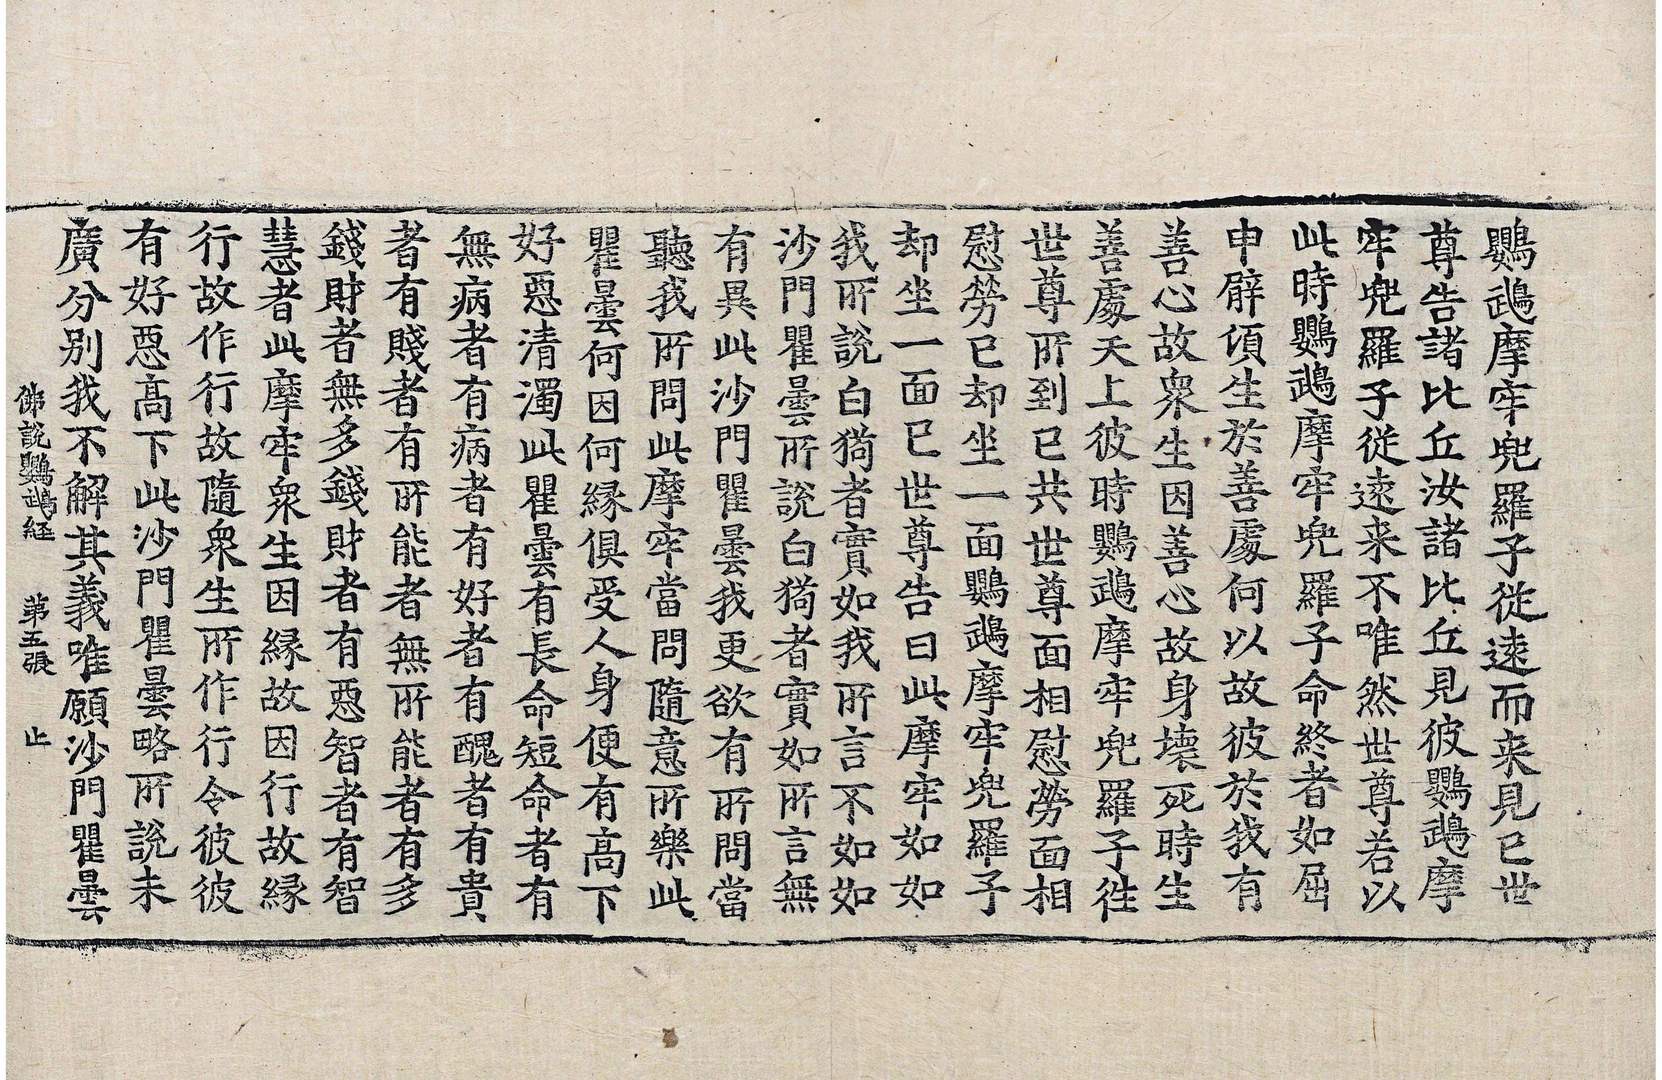 鸚鵡摩牢兜羅子從遠而来見已世
尊告諸比丘汝諸比丘見彼鸚鵡摩
牢兜羅子從遠来不唯然世尊若以
此時鸚鵡摩牢兜羅子命終者如屈
申臂頃生於善處何以故彼於我有
善心故衆生因善心故身壞死時生
善處天上彼時鸚鵡摩牢兜羅子往
世尊所到已共世尊面相慰勞面相
慰勞已却坐一面鸚鵡摩牢兜羅子
却坐一面已世尊告曰此摩牢如如
我所說白猗者實如我所言不如如
沙門瞿曇所說白猗者實如所言無
有異此沙門瞿曇我更欲有所問當
聽我所問此摩牢當問隨意所樂此
瞿曇何因何縁俱受人身便有髙下
好惡清濁此瞿曇有長命短命者有
無病者有病者有好者有醜者有貴
者有賤者有所能者無所能者有多
錢財者無多錢財者有惡智者有智
慧者此摩牢衆生因縁故因行故縁
行故作行故隨衆生所作行令彼彼
有好惡髙下此沙門瞿曇略所說未
廣分别我不解其義唯願沙門瞿曇
佛說鸚鵡経 第五張 止